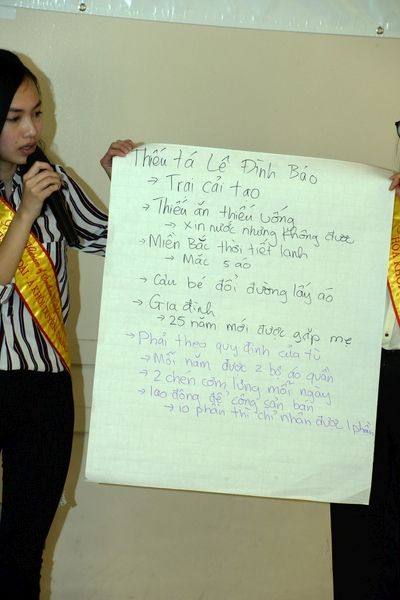 Thiếu tá Lê Đình Báo
→ Trại cải tạo
→ Thiếu ăn thiếu uống
→ xin nước nhưng không được
→ Miền Bắc thời tiết lạnh
→ Mặc 5 áo
→ Cậu bé đổi đường lấy áo
→ Gia đình
→ 25 năm mới được gặp mẹ
→ Phải theo quy định của tù
→ Mỗi năm được 2 bộ áo quần
→ 2 chén cơm lưng mỗi ngày
→ lao động để cộng sản bán
→ 10 phần thì chỉ nhận được 1 phần